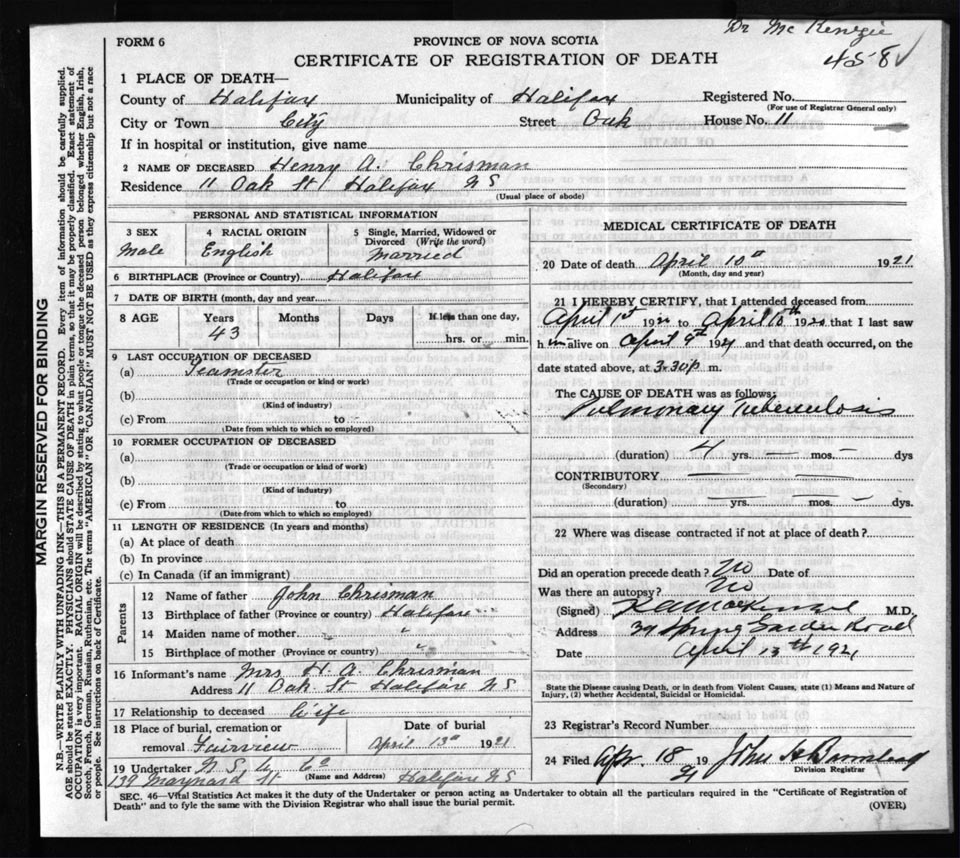 Dr McKenzie
FORM 6
PROVINCE OF NOVA SCOTIA
458 ✓
CERTIFICATE OF REGISTRATION OF DEATH
1 PLACE OF DEATH—
County of Halifax Municipality of Halifax Registered No.
(For use of Registrar General only)
City or Town City Street Oak House No. 11
If in hospital or institution, give name
2 NAME OF DECEASED Henry A. Chrisman
Residence 11 Oak St Halifax NS
(Usual place of abode)
PERSONAL AND STATISTICAL INFORMATION
3 SEX 4 RACIAL ORIGIN 5 Single, Married, Widowed or Divorced (Write the word)
Male English Married
6 BIRTHPLACE (Province or Country) Halifax
7 DATE OF BIRTH (month, day and year)
8 AGE Years Months Days If less than one day,
43 hrs. or min.
9 LAST OCCUPATION OF DECEASED
(a) Teamster
(Trade or occupation or kind or work)
(b)
(Kind of industry)
(c) From to
(Date from which to which so employed)
10 FORMER OCCUPATION OF DECEASED
(a)
(Trade or occupation or kind of work)
(b)
(Kind of industry)
(c) From to
(Date from which to which so employed)
11 LENGTH OF RESIDENCE (In years and months)
(a) At place of death
(b) In province
(c) In Canada (if an immigrant)
Parents
12 Name of father John Chrisman
13 Birthplace of father (Province or country) Halifax
14 Maiden name of mother "
15 Birthplace of mother (Province or country) "
16 Informant's name Mrs H. A. Chrisman
Address 11 Oak St Halifax NS
17 Relationship to deceased Wife
18 Place of burial, cremation or Date of burial
removal Fairview April 13th 1921
19 Undertaker N. S. U. Co
139 Maynard St (Name and Address) Halifax NS
MEDICAL CERTIFICATE OF DEATH
20 Date of death April 10th 1921
(Month, day and year)
21 I HEREBY CERTIFY, that I attended deceased from
April 1st 192 to April 10th 192 that I last saw
him alive on April 9th 1921 and that death occurred, on the
date stated above, at 3.30 p m.
The CAUSE OF DEATH was as follows:
Pulmonary Tuberculosis
(duration) 4 yrs. — mos. — dys
CONTRIBUTORY
(Secondary)
(duration) — yrs. — mos. — dys.
22 Where was disease contracted if not at place of death?
Did an operation precede death? No Date of
Was there an autopsy? No
(Signed) MacKenzie M.D.
Address 34 Spring Garden Road
Date April 13th 1921
State the Disease causing Death, or in death from Violent Causes, state (1) Means and Nature of
Injury, (2) whether Accidental, Suicidal or Homicidal.
23 Registrar's Record Number
24 Filed Apr. 18 19 21 John
Division Registrar
SEC. 46—Vital Statistics Act makes it the duty of the Undertaker or person acting as Undertaker to obtain all the particulars required in the "Certificate of Registration of
Death" and to fyle the same with the Division Registrar who shall issue the burial permit.
(OVER)
MARGIN RESERVED FOR BINDING
N.B.—WRITE PLAINLY WITH UNFADING INK—THIS IS A PERMANENT RECORD. Every item of information should be carefully supplied.
AGE should be stated EXACTLY. PHYSICIANS should STATE CAUSE OF DEATH in plain terms, so that it may be properly classified. Exact statement of
OCCUPATION is very important. RACIAL ORIGIN will be described by stating to what people or tongue the deceased person belonged whether English, Irish,
Scotch, French, German, Russian, Ruthenian, etc. The terms "AMERICAN" OR "CANADIAN" MUST NOT BE USED as they express citizenship but not a race
or people. See instructions on back of Certificate.